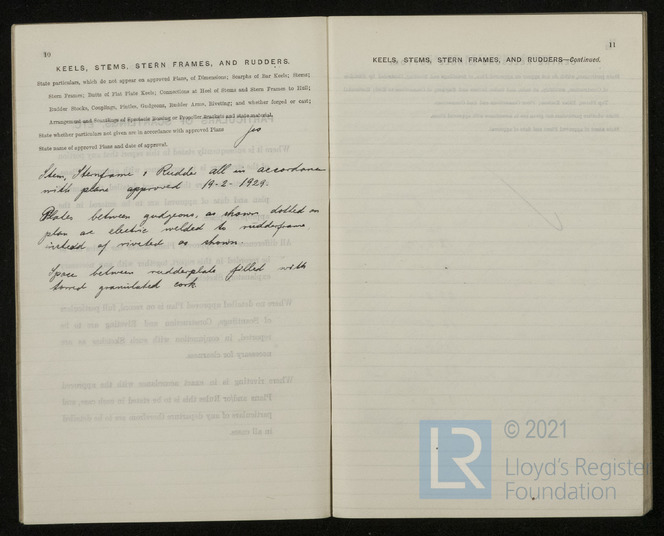 10
KEELS, STEMS, STERN FRAMES, AND RUDDERS.
State particulars, which do not appear on approved Plans, of Dimensions; Scarphs of Bar Keels; Stems;
Stern Frames; Butts of Flat Plate Keels; Connections at Heel of Stems and Stern Frames to Hull;
Rudder Stocks, Couplings, Pintles, Gudgeons, Rudder Arms, Riveting; and whether forged or cast;
Arrangement and Scantlings of Spectacle Bossing or Propeller Brackets and state material.
State whether particulars not given are in accordance with approved Plans Yes
State name of approved Plans and date of approval.
Stem, Sternframe & Rudder all in accordance
with plans approved 19-2-1929.
Plates between gudgeons, as shown dotted on
plan are electric welded to rudderframe,
instead of riveted as shown.
Space between rudderplate filled with
tarred granulated cork
11
KEELS, STEMS, STERN FRAMES, AND RUDDERS—Continued.
LR
© 2021
Lloyd's Register
Foundation